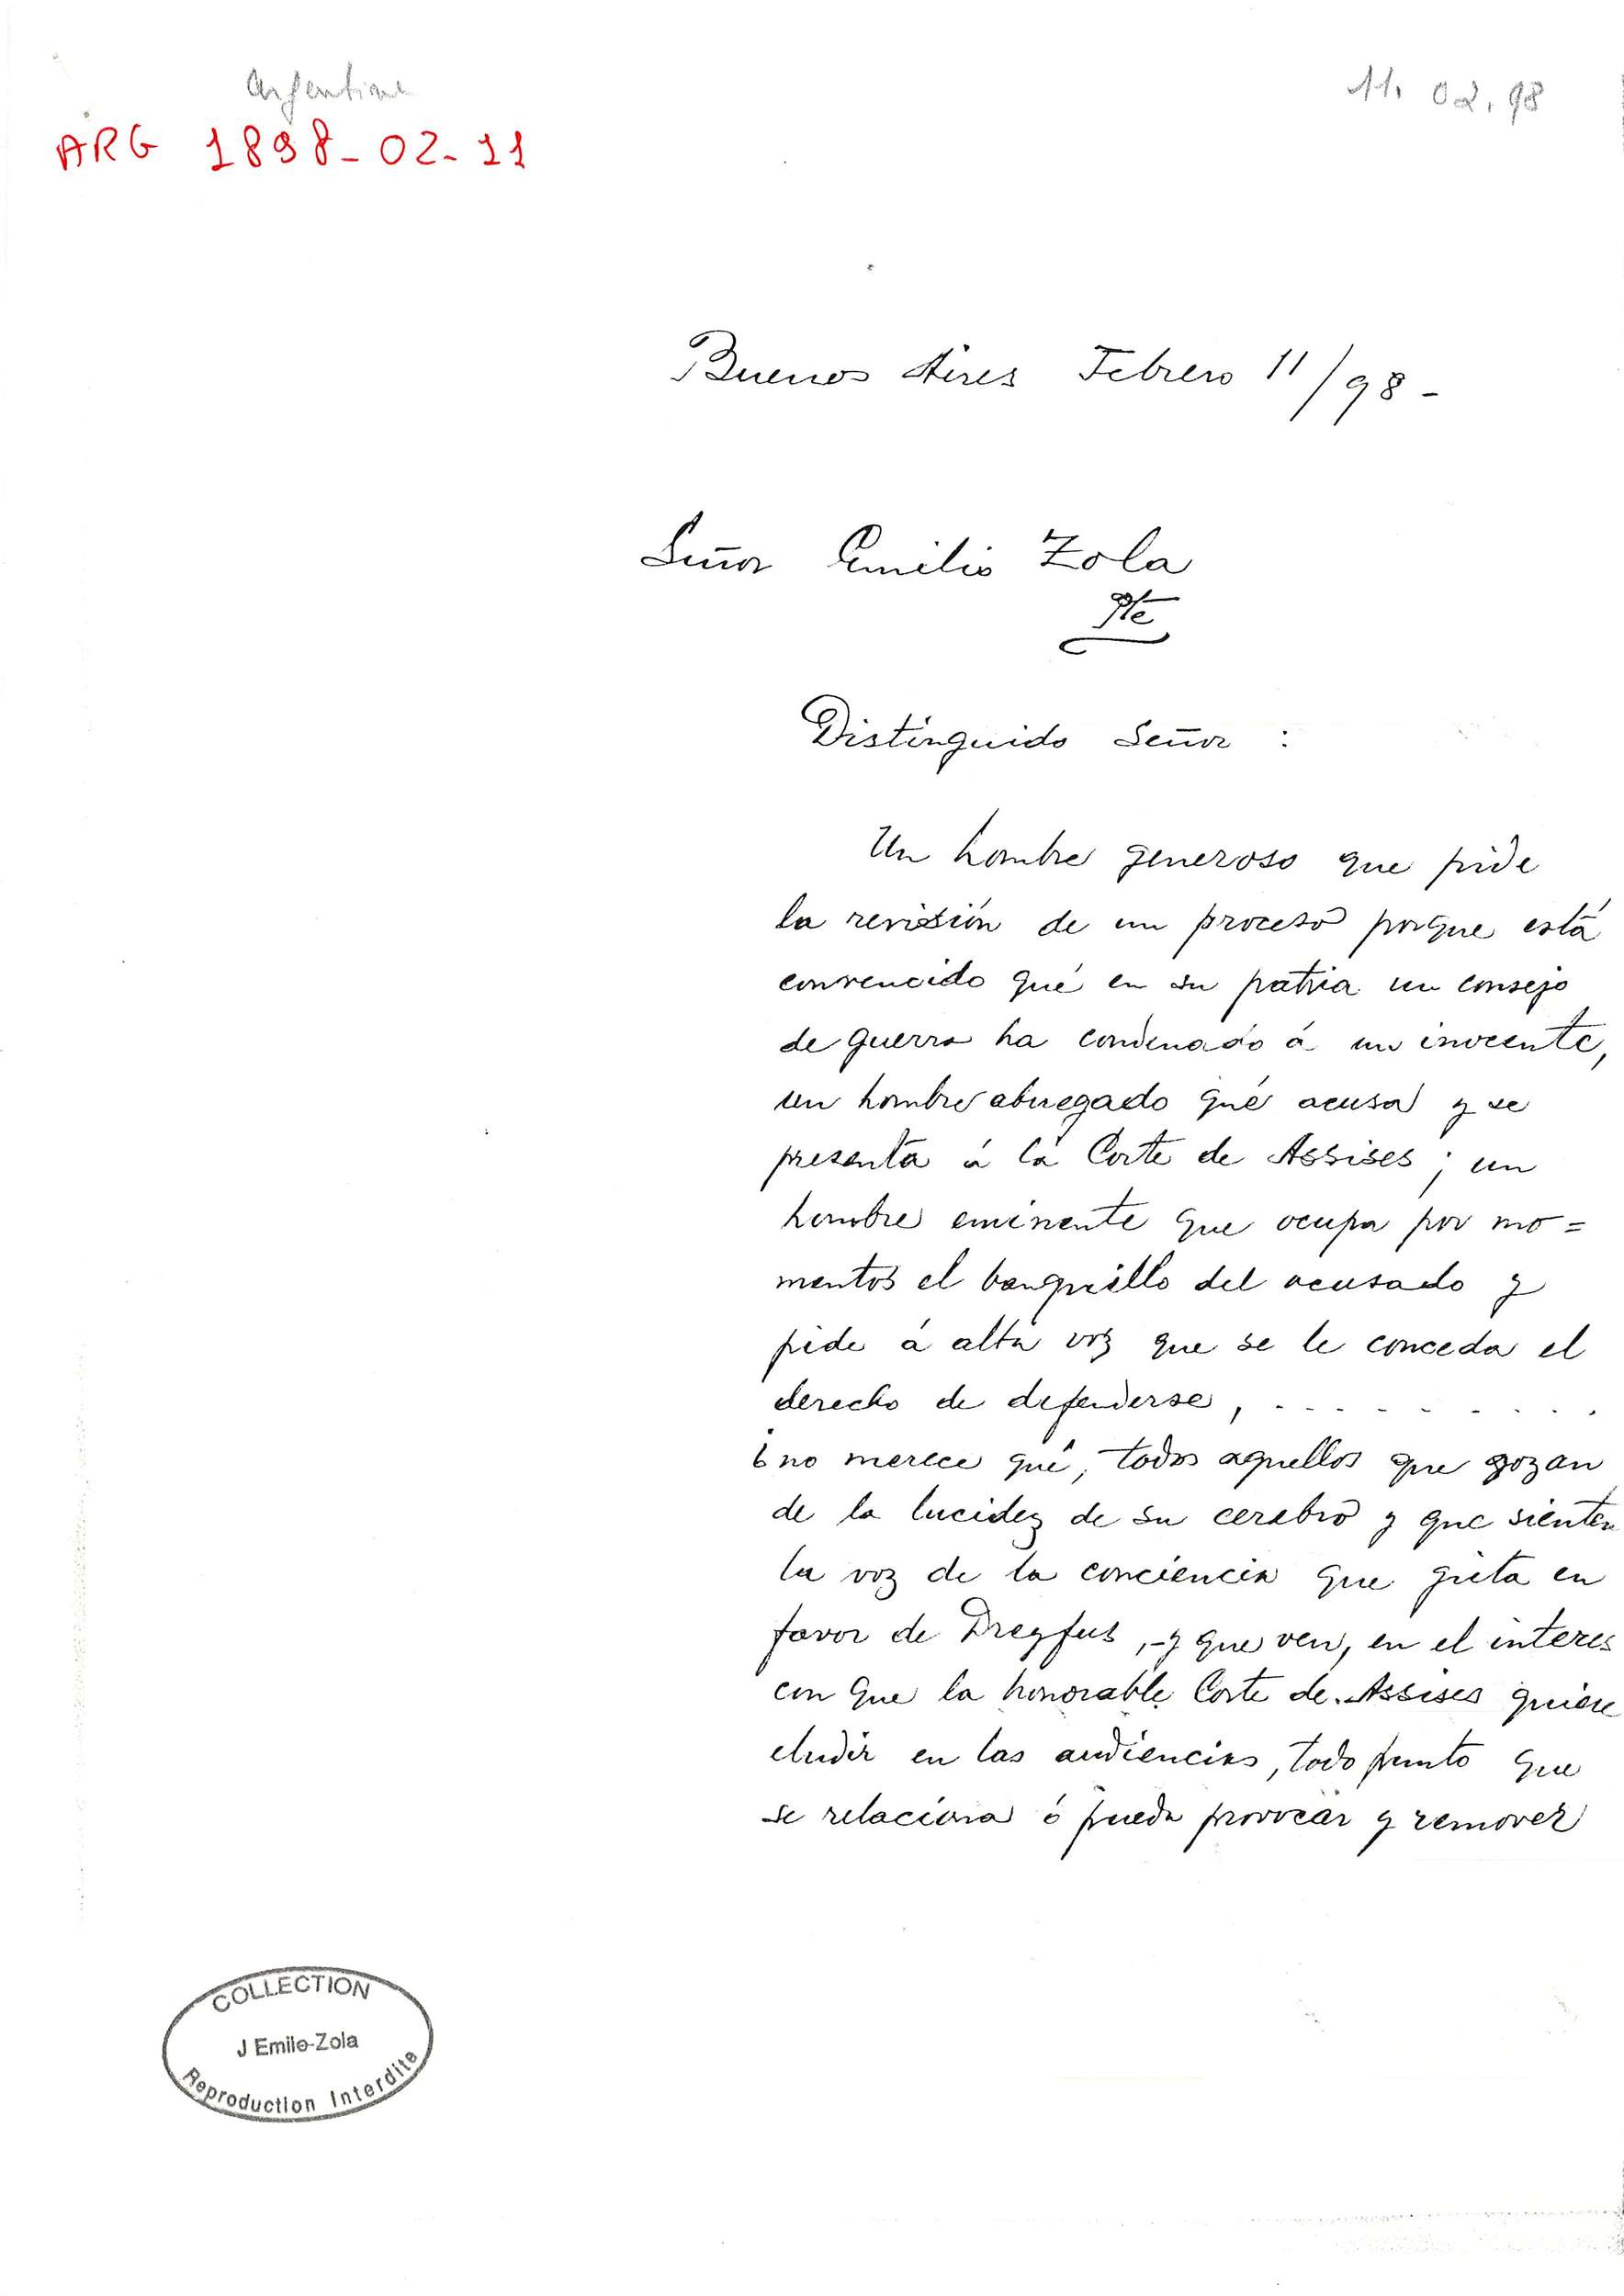 Argentine
11. 02. 98
ARG 1898-02-11
Buenos Aires Febrero 11/98-
Señor Emilio Zola
Pte
Distinguido Señor :
Un hombre generoso que pide
la revisión de un proceso porque está
convencido qué en su patria un consejo
de guerra ha condenado á un inocente,
un hombre abnegado qué acusa y se
presenta á la Corte de Assises ; un
hombre eminente que ocupa por mo=
mentos el banquillo del acusado y
pide á alta voz que se le conceda el
derecho de defenderse, . . . . . . . . . .
¿no merece qué, todos aquellos que gozan
de la lucidez de su cerebro y que sienten
la voz de la conciencia que grita en
favor de Dreyfus, -y que ven, en el interes
con que la honorable Corte de Assises quiere
eludir en las audiencias, todo punto que
se relaciona ó pueda provocar y remover
COLLECTION
J Emile-Zola
Reproduction Interdite